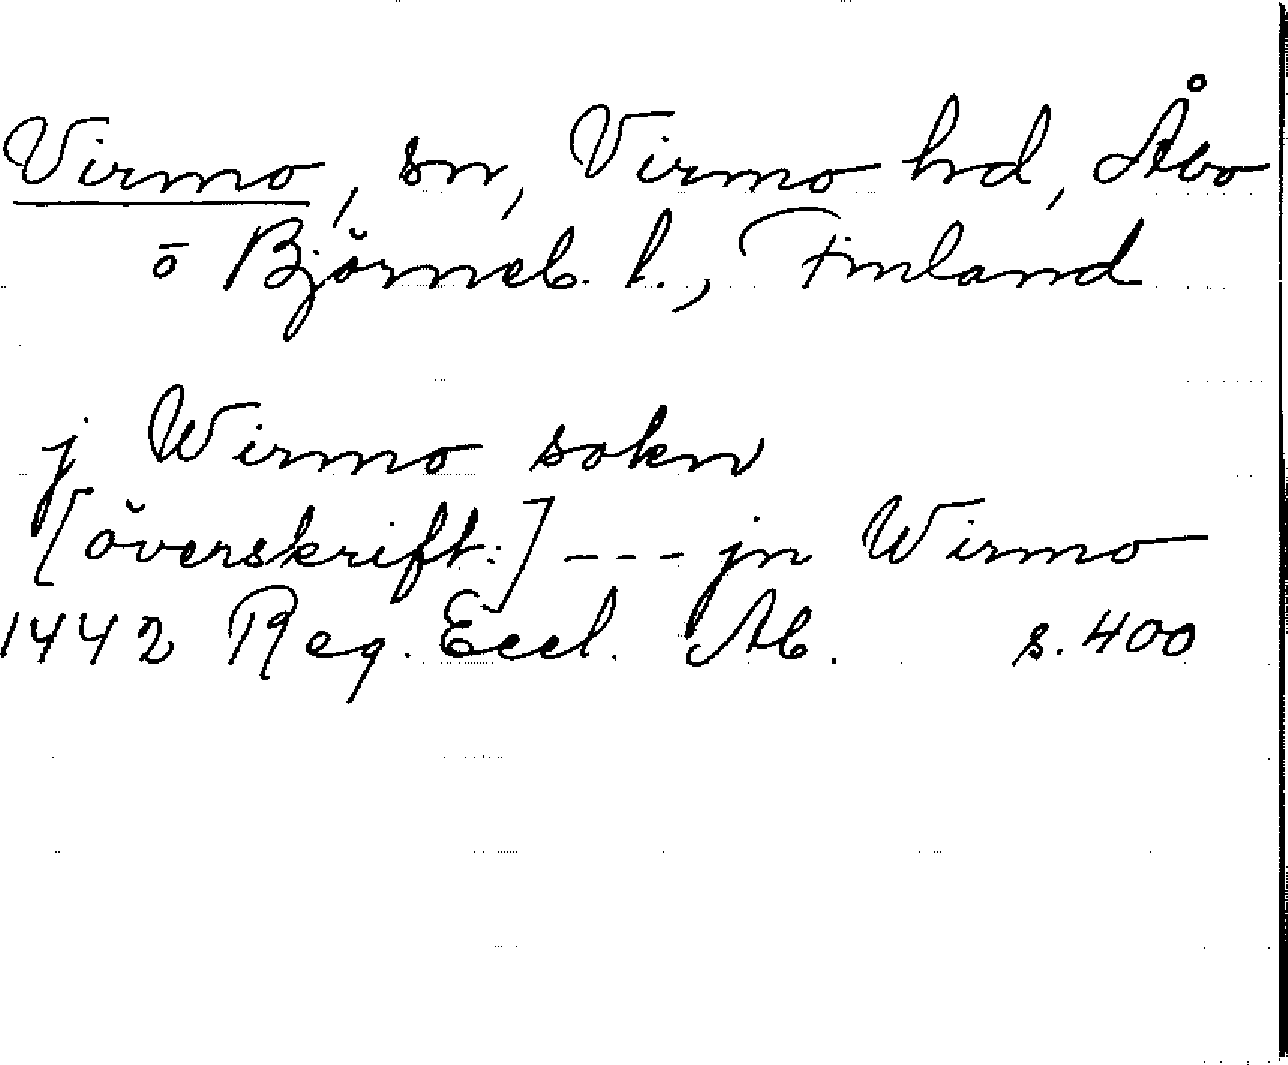 Virmo, sn, Virmo hd, Åbo
o Björneb. l., Finland
j Wirmo sokn
[överskift:] --- jn Wirmo
1442 Reg. Eccl. Ab. s. 400